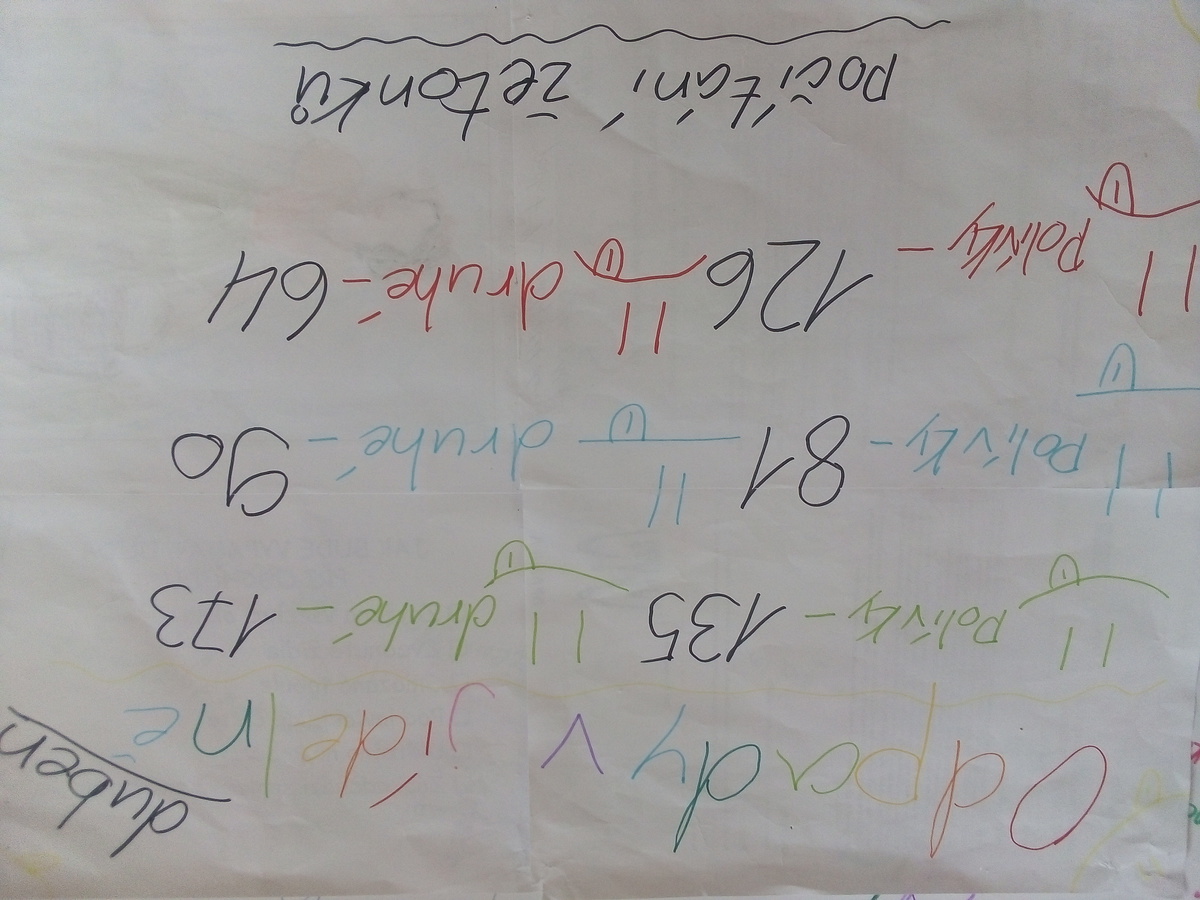 duben
Odpady v jídelně
Polívky - 135 druhé - 173
Polívky - 81 druhé - 90
Polívky - 126 druhé - 64
počítání žetonků